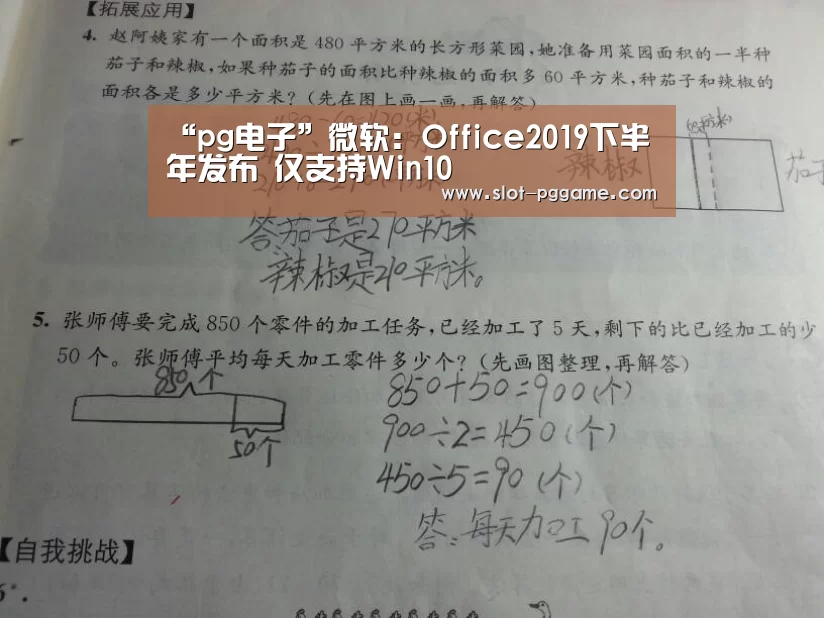 【拓展应用】
4. 赵阿姨家有一个面积是 480 平方米的长方形菜园,她准备用菜园面积的一半种
茄子和辣椒,如果种茄子的面积比种辣椒的面积多 60 平方米,种茄子和辣椒的
面积各是多少平方米?(先在图上画一画,再解答)
“pg电子”微软:Office2019下半
年发布 仅支持Win10
www.slot-pggame.com
辣椒
茄子
答:茄子是270平方米
辣椒是210平方米。
5. 张师傅要完成 850 个零件的加工任务,已经加工了 5 天,剩下的比已经加工的少
50 个。张师傅平均每天加工零件多少个?(先画图整理,再解答)
850个
50个
850+50=900(个)
900÷2=450(个)
450÷5=90(个)
答:每天加工90个。
【自我挑战】
6*.